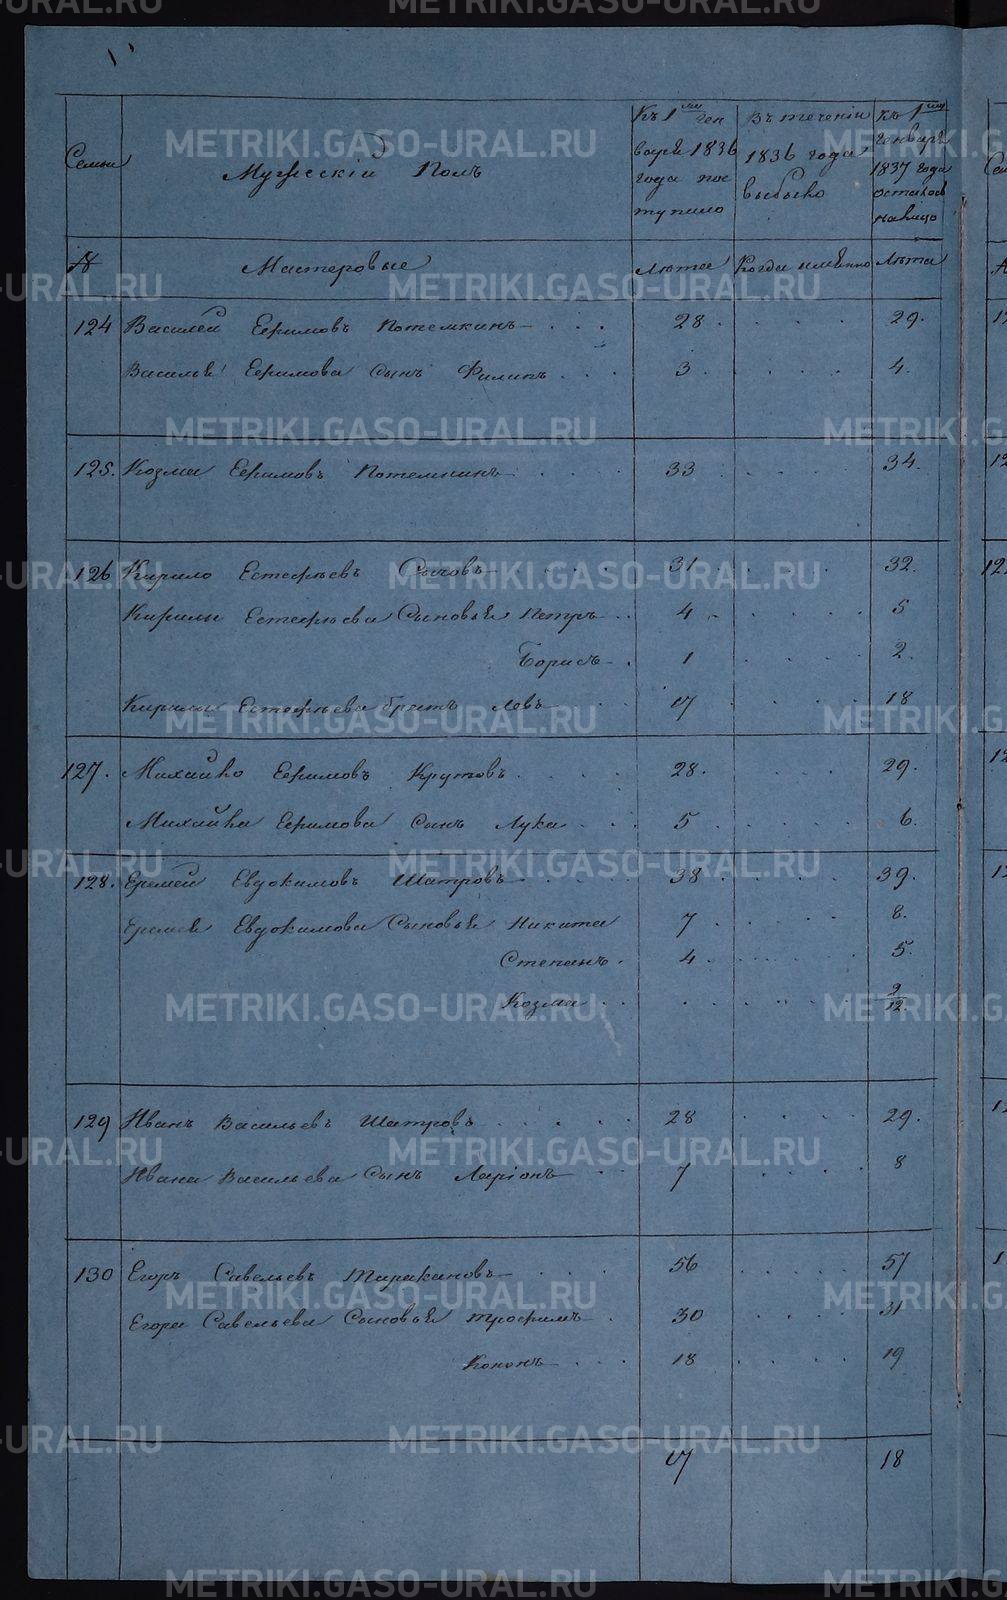 Семьи
Мужескій Полъ
Къ 1му Генваря 1836 года поступило
Въ теченіи 1836 года выбыло
Къ 1му Генваря 1837 года осталось налицо
№ Мастеровые Лѣта Когда именно Лѣта
124 Василей Ефимовъ Потемкинъ 28 29.
Васильѣ Ефимова Сынъ Филипъ 3 4.
125. Козма Ефимовъ Потемкинъ 33 34.
126 Кирило Естефѣевъ Сычовъ 31 32.
Кирилы Естефѣева Сыновья Петръ 4 5
Борисъ 1 2.
Кирилы Естефѣева братъ Левъ 17 18
127. Михайло Ефимовъ Крутовъ 28. 29.
Михайла Ефимова Сынъ Лука 5 6.
128. Еремей Евдокимовъ Шатровъ 38 39.
Еремея Евдокимова Сыновья Никита 7 8.
Степанъ 4 5.
Козма 9/12.
129 Иванъ Васильевъ Шатровъ 28 29.
Ивана Васильева Сынъ Ларіонъ 7 8
130 Егоръ Савельевъ Тараkановъ 56 57
Егора Савельева Сыновья Трофимъ 30 31
Кононъ 18 19
17 18
METRIKI.GASO-URAL.RU